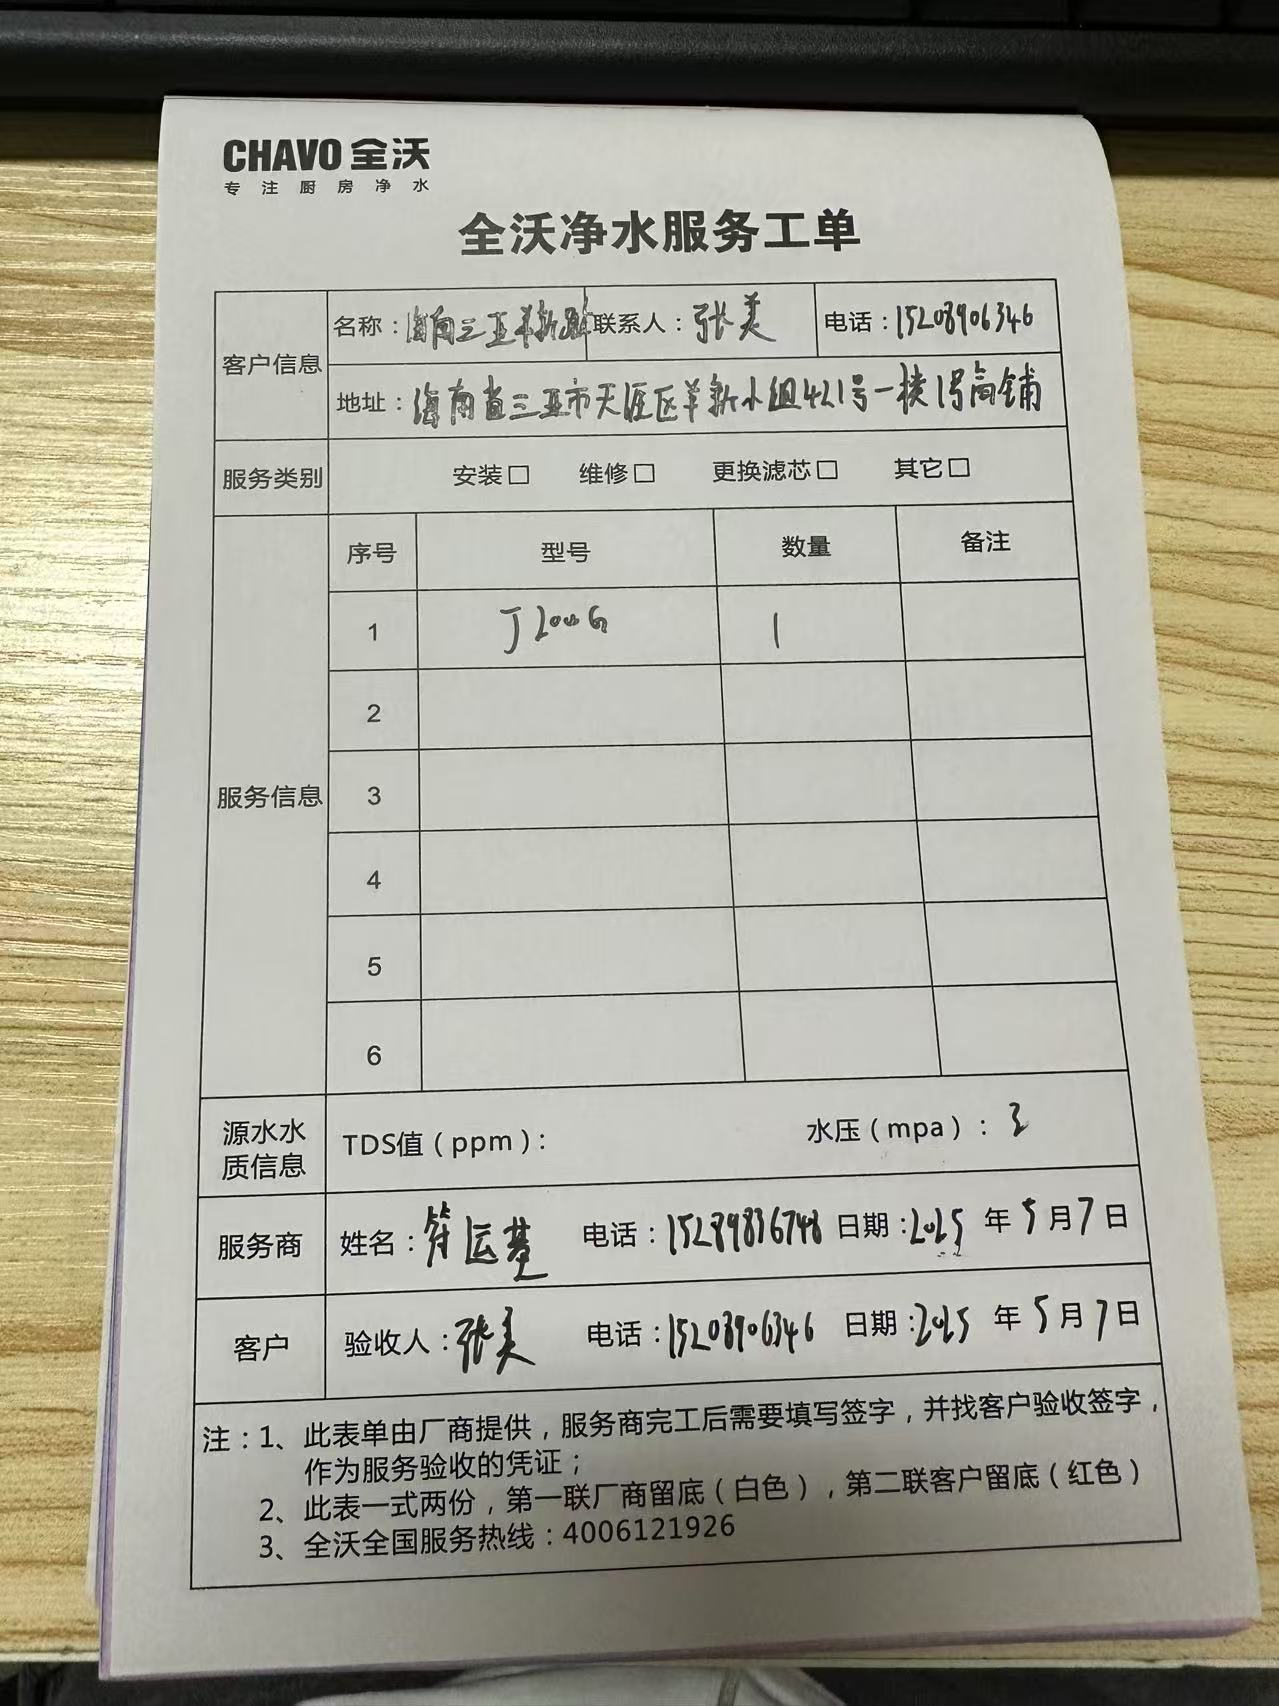 CHAVO 全沃
专注厨房净水
全沃净水服务工单
客户信息
名称：海南三亚羊新路 联系人：张美 电话：15208906346
地址：海南省三亚市天涯区羊新小组421号一楼1号商铺
服务类别 安装□ 维修□ 更换滤芯□ 其它□
服务信息
序号 型号 数量 备注
1 J200G 1
2
3
4
5
6
源水水质信息 TDS值（ppm）： 水压（mpa）：3
服务商 姓名：符运基 电话：15289836748 日期：2025 年 5 月 7 日
客户 验收人：张美 电话：15208906346 日期：2025 年 5 月 7 日
注：1、此表单由厂商提供，服务商完工后需要填写签字，并找客户验收签字，
作为服务验收的凭证；
2、此表一式两份，第一联厂商留底（白色），第二联客户留底（红色）
3、全沃全国服务热线：4006121926